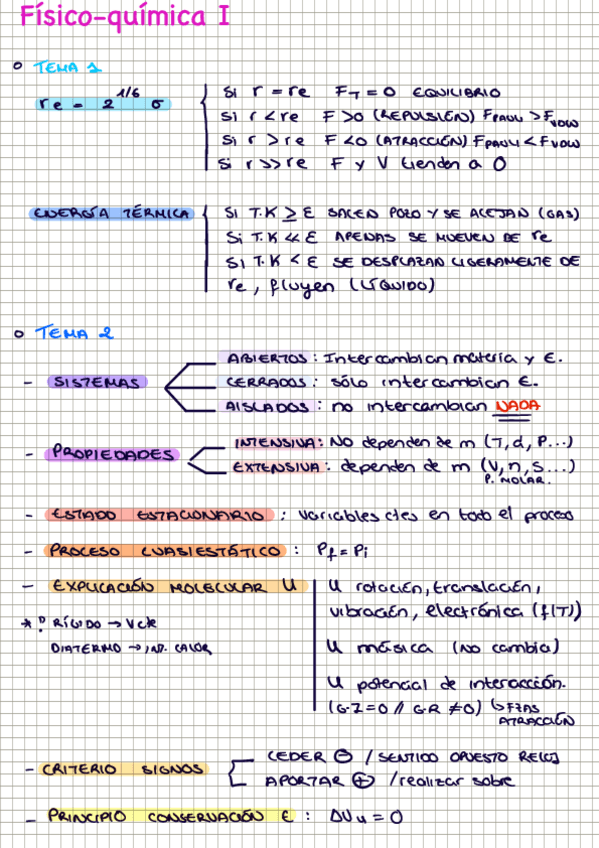 Físico-química I
o TEMA 1
re = 2^1/6 σ
Si r = re F_T = 0 EQUILIBRIO
Si r < re F > 0 (REPULSIÓN) F_PAULI > F_VDW
Si r > re F < 0 (ATRACCIÓN) F_PAULI < F_VDW
Si r >> re F y V tienden a 0
ENERGÍA TÉRMICA
Si T.K ≥ ε SALEN POZO Y SE ALEJAN (GAS)
Si T.K << ε APENAS SE MUEVEN DE re
Si T.K < ε SE DESPLAZAN LIGERAMENTE DE
re, fluyen (LÍQUIDO)
o TEMA 2
- SISTEMAS
ABIERTOS: Intercambian materia y E.
CERRADOS: sólo intercambian E.
AISLADOS: no intercambian NADA
- PROPIEDADES
INTENSIVA: NO dependen de m (T, d, P...)
EXTENSIVA: dependen de m (V, n, S...)
P. MOLAR.
- ESTADO ESTACIONARIO : variables ctes en todo el proceso
- PROCESO CUASIESTÁTICO : Pf = Pi
- EXPLICACIÓN MOLECULAR U
U rotación, translación,
vibración, electrónica (f(T))
* P RÍGIDO → V cte
DIATERMO → INT. CALOR
U másica (no cambia)
U potencial de interacción.
(G.I = 0 // G.R ≠ 0) ↳ FZAS
ATRACCIÓN
- CRITERIO SIGNOS
CEDER ⊖ / SENTIDO OPUESTO RELOJ
APORTAR ⊕ / realizar sobre
- PRINCIPIO CONSERVACIÓN E : ΔUu = 0